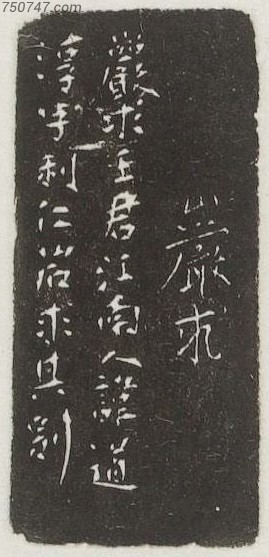 巖求
巖求王君江南人諱道
淳字利仁岩求其別
750747.com